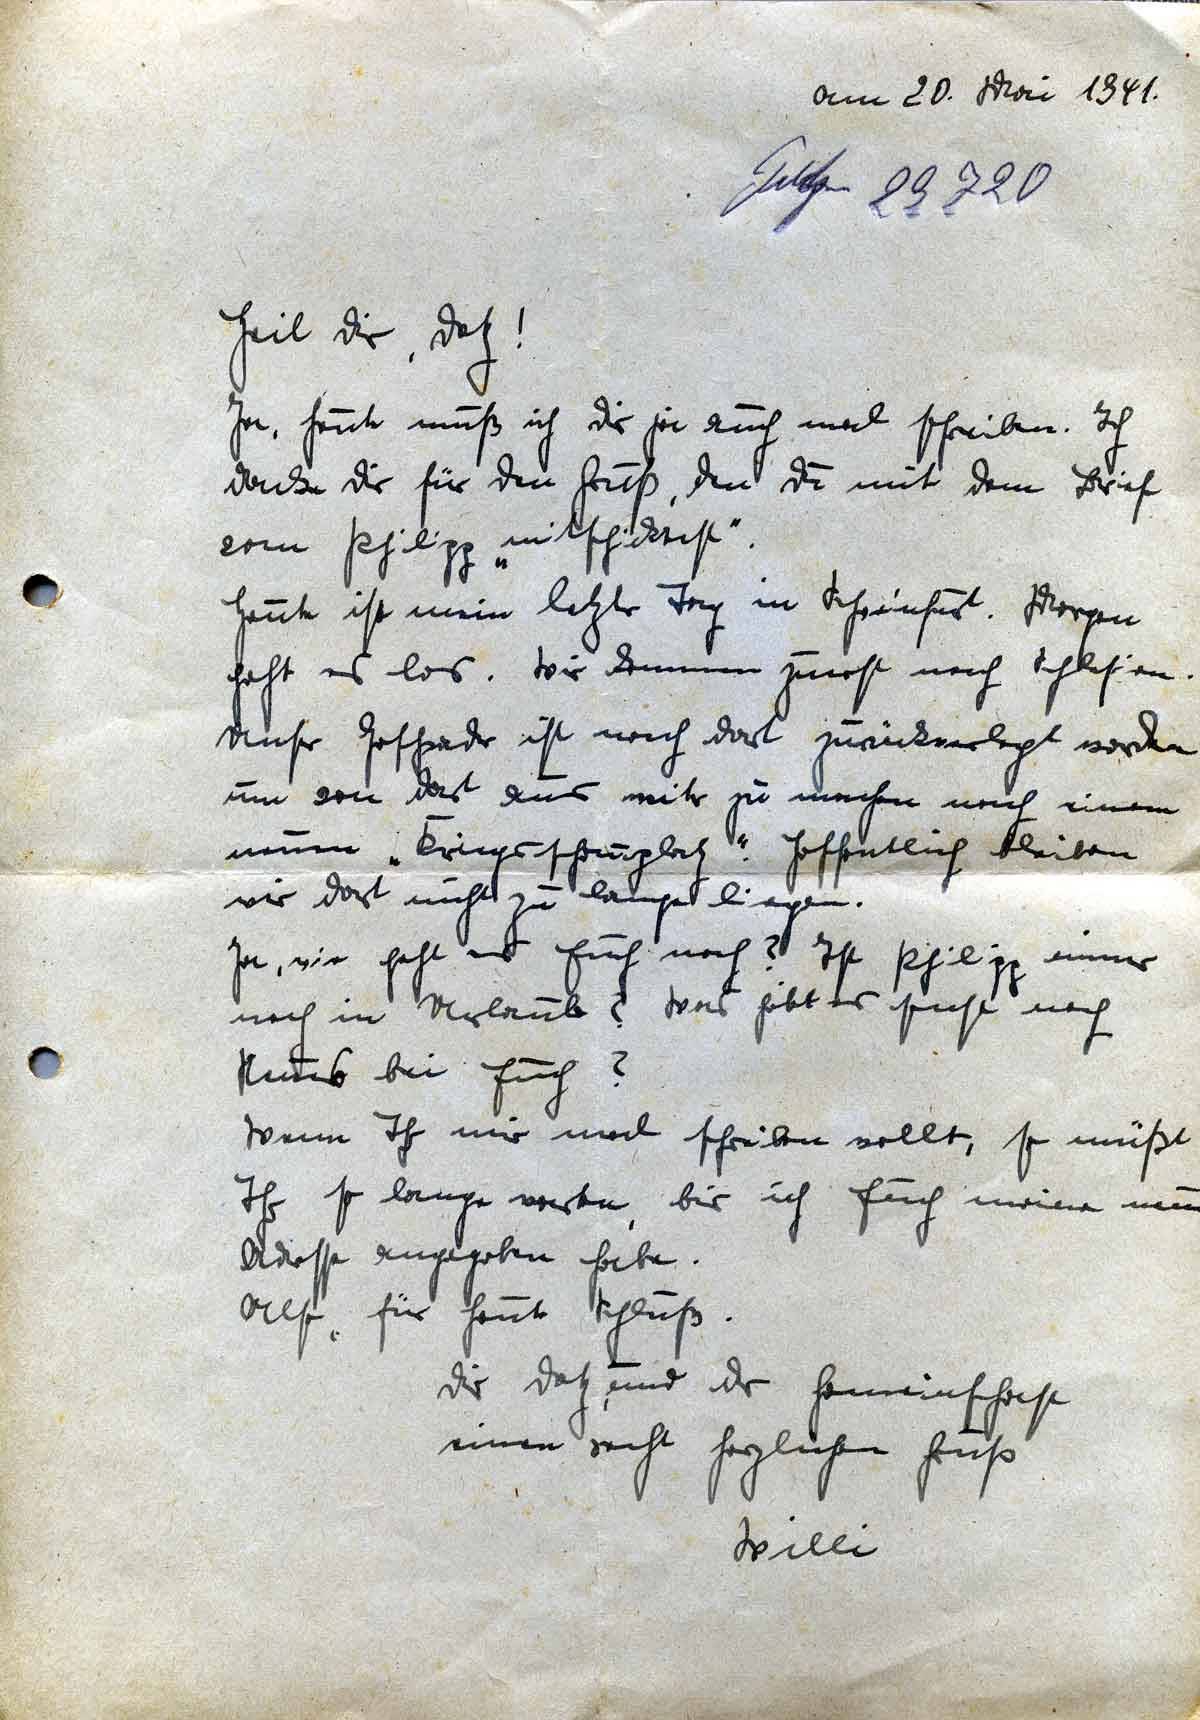 am 20. Mai 1941.
29720
Heil dir, Datz!
Ja, heute muß ich dir ja auch mal schreiben. Ich
danke dir für den Gruß, den du mit dem Brief
vom Philipp „mitschicktest“.
Heute ist mein letzter Tag in Schweinfurt. Morgen
geht es los. Wir kommen zuerst nach Schlesien.
Unser ist nach dort zurückverlegt worden
um von dort aus weiter zu machen nach einem
neuen „Kriegsschauplatz“. Hoffentlich bleiben
wir dort nicht zu lange liegen.
Ja, wie geht es Euch noch? Ist Philipp immer
noch in Urlaub? Was gibt es sonst noch
Neues bei Euch?
Wenn Ihr mir mal schreiben wollt, so müßt
Ihr so lange warten, bis ich Euch meine neue
Adresse angegeben habe.
Also, für heute Schluß.
Dir Datz, und der Gemeinschaft
einen recht herzlichen Gruß
Willi